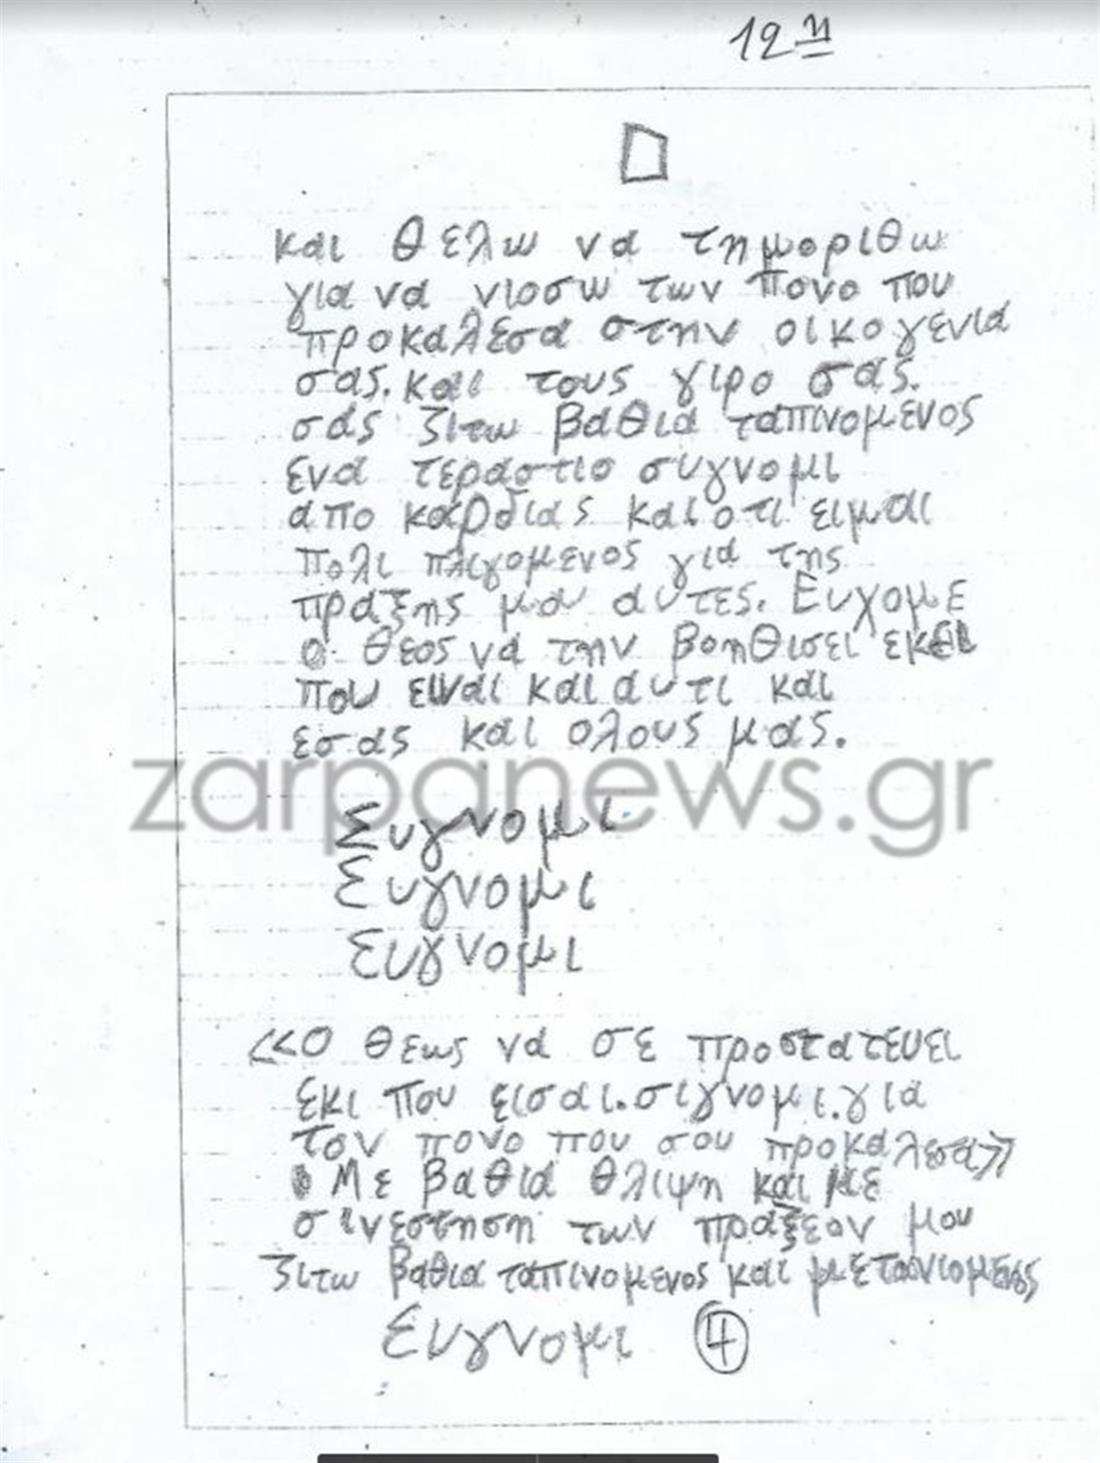 12η
και θελω να τημοριθω
για να νιοσω των πονο που
προκαλεσα στην οικογενια
σας. και τους γιρο σας.
σας ζιτω βαθια ταπινομενος
ενα τεραστιο συγνομι
απο καρδιας και οτι ειμαι
πολι πλιγομενος για της
πραξης μου αυτες. Ευχομε
ο θεος να την βοηθισει εκει
που ειναι και αυτι και
εσας και ολους μας.
zarpanews.gr
Συγνομι
Συγνομι
Συγνομι
«Ο θεως να σε προστατευει
εκι που εισαι. σιγνομι. για
τον πονο που σου προκαλεσα»
Με βαθια θλιψη και με
σινεστηση των πραξεον μου
ζιτω βαθια ταπινομενος και μετανιομενος
Συγνομι 4